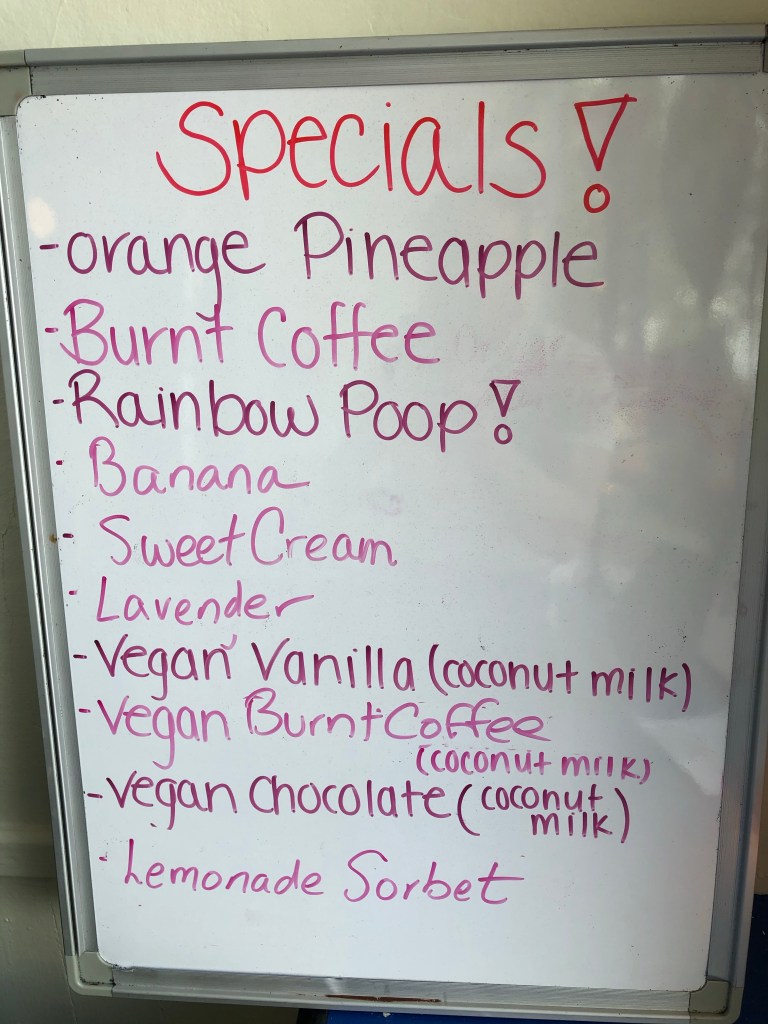 Specials!
-orange Pineapple
-Burnt Coffee
-Rainbow Poop!
- Banana
- Sweet Cream
- Lavender
-Vegan Vanilla (coconut milk)
-Vegan Burnt Coffee
(coconut milk)
-Vegan Chocolate (coconut
milk)
- Lemonade Sorbet